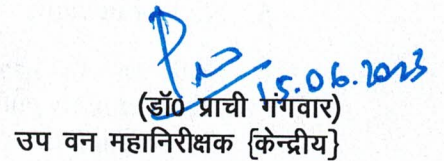 15.06.2023
(डॉ0 प्राची गंगवार)
उप वन महानिरीक्षक {केन्द्रीय}